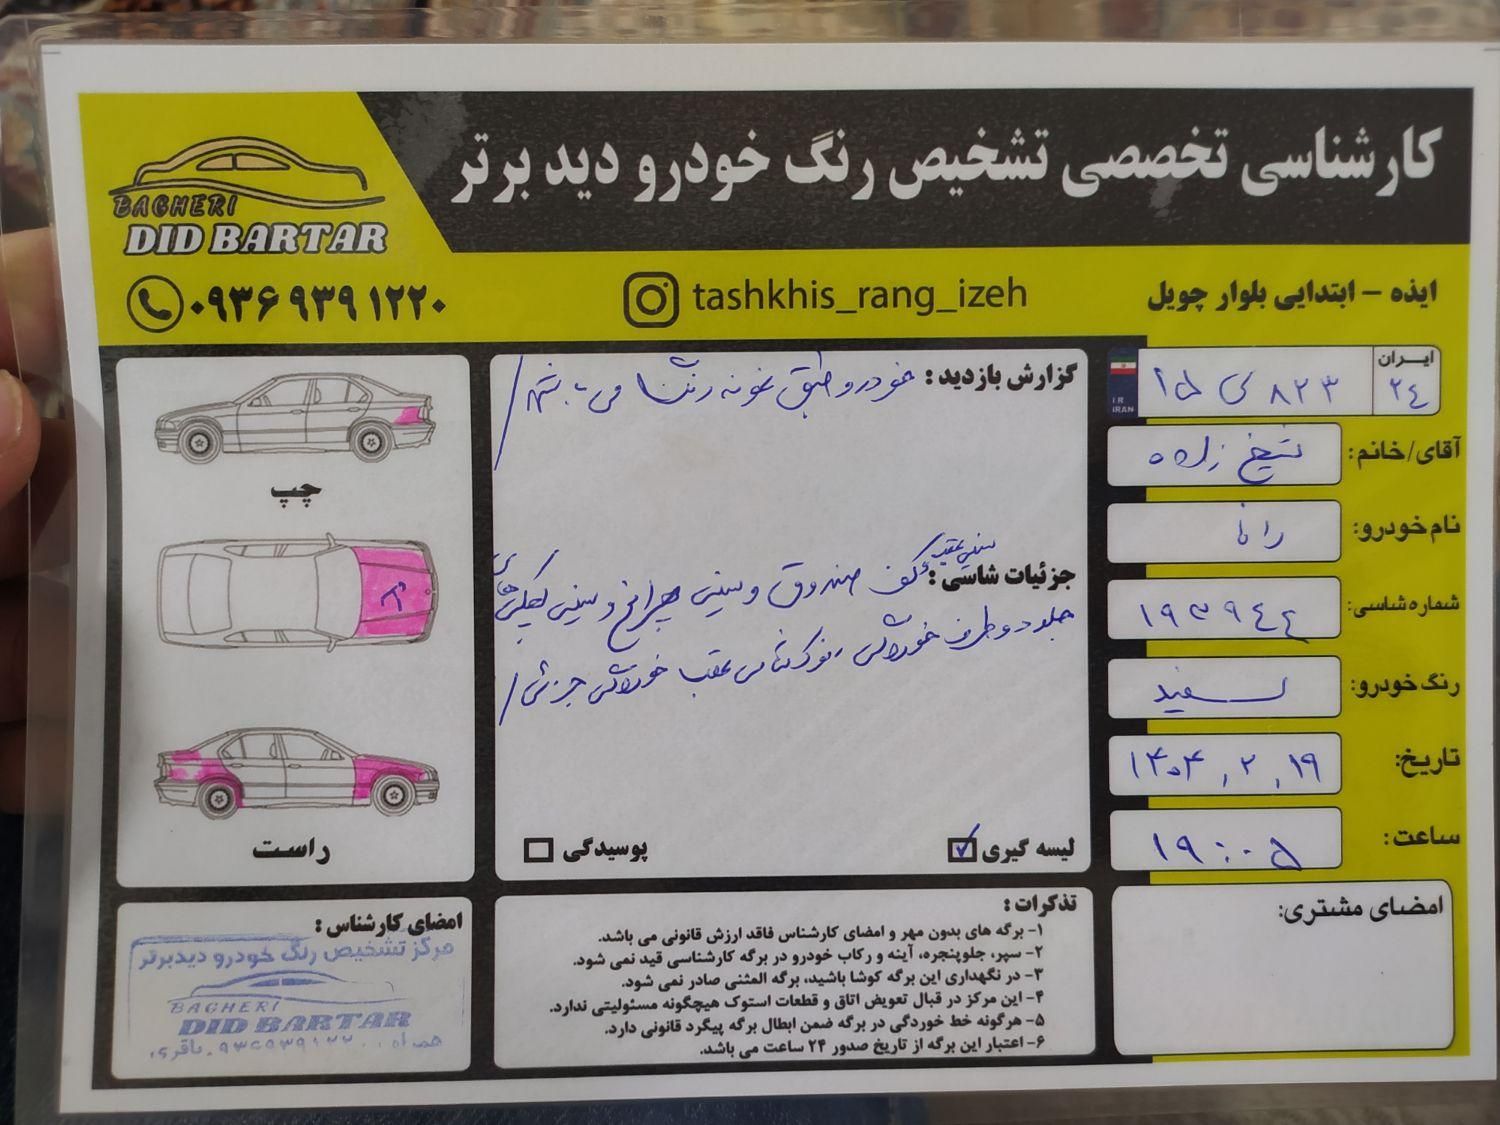 کارشناسی تخصصی تشخیص رنگ خودرو دید برتر
BAGHERI
DID BARTAR
ایذه - ابتدایی بلوار چویل
tashkhis_rang_izeh
۰۹۳۶ ۹۳۹ ۱۲۲۰
ایران
۲٤
۱۵ ی ۸۲۳
I.R
IRAN
آقای/خانم: شیخ زاده
نام خودرو: رانا
شماره شاسی: ۱۹۳۹٤٤
رنگ خودرو: سفید
تاریخ: ۱۴۰۴,۲,۱۹
ساعت: ۱۹:۰۵
امضای مشتری:
گزارش بازدید: خودرو طبق نمونه رنگ
جزئیات شاسی: سینی عقب
کف صندوق و سینی چراغ و سینی
جلو دو طرف خوردگی عقب خوردگی جزئی
لیسه گیری
پوسیدگی
تذکرات:
۱- برگه های بدون مهر و امضای کارشناس فاقد ارزش قانونی می باشد.
۲- سپر، جلوپنجره، آینه و رکاب خودرو در برگه کارشناسی قید نمی شود.
۳- در نگهداری این برگه کوشا باشید، برگه المثنی صادر نمی شود.
۴- این مرکز در قبال تعویض اتاق و قطعات استوک هیچگونه مسئولیتی ندارد.
۵- هرگونه خط خوردگی در برگه ضمن ابطال برگه پیگرد قانونی دارد.
۶- اعتبار این برگه از تاریخ صدور ۲۴ ساعت می باشد.
چپ
راست
امضای کارشناس:
مرکز تشخیص رنگ خودرو دیدبرتر
BAGHERI
DID BARTAR
همراه: ۰۹۳۶۹۳۹۱۲۲۰ باقری